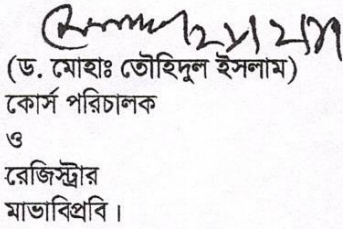 (ড. মোহাঃ তৌহিদুল ইসলাম)
কোর্স পরিচালক
ও
রেজিস্ট্রার
মাভাবিপ্রবি।